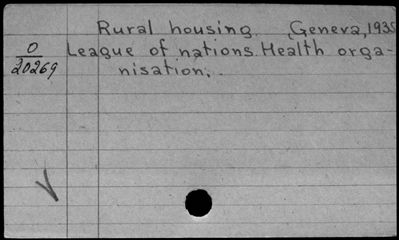 Rural housing. Geneva, 1935
O
20269
League of nations. Health orga-
nisation.